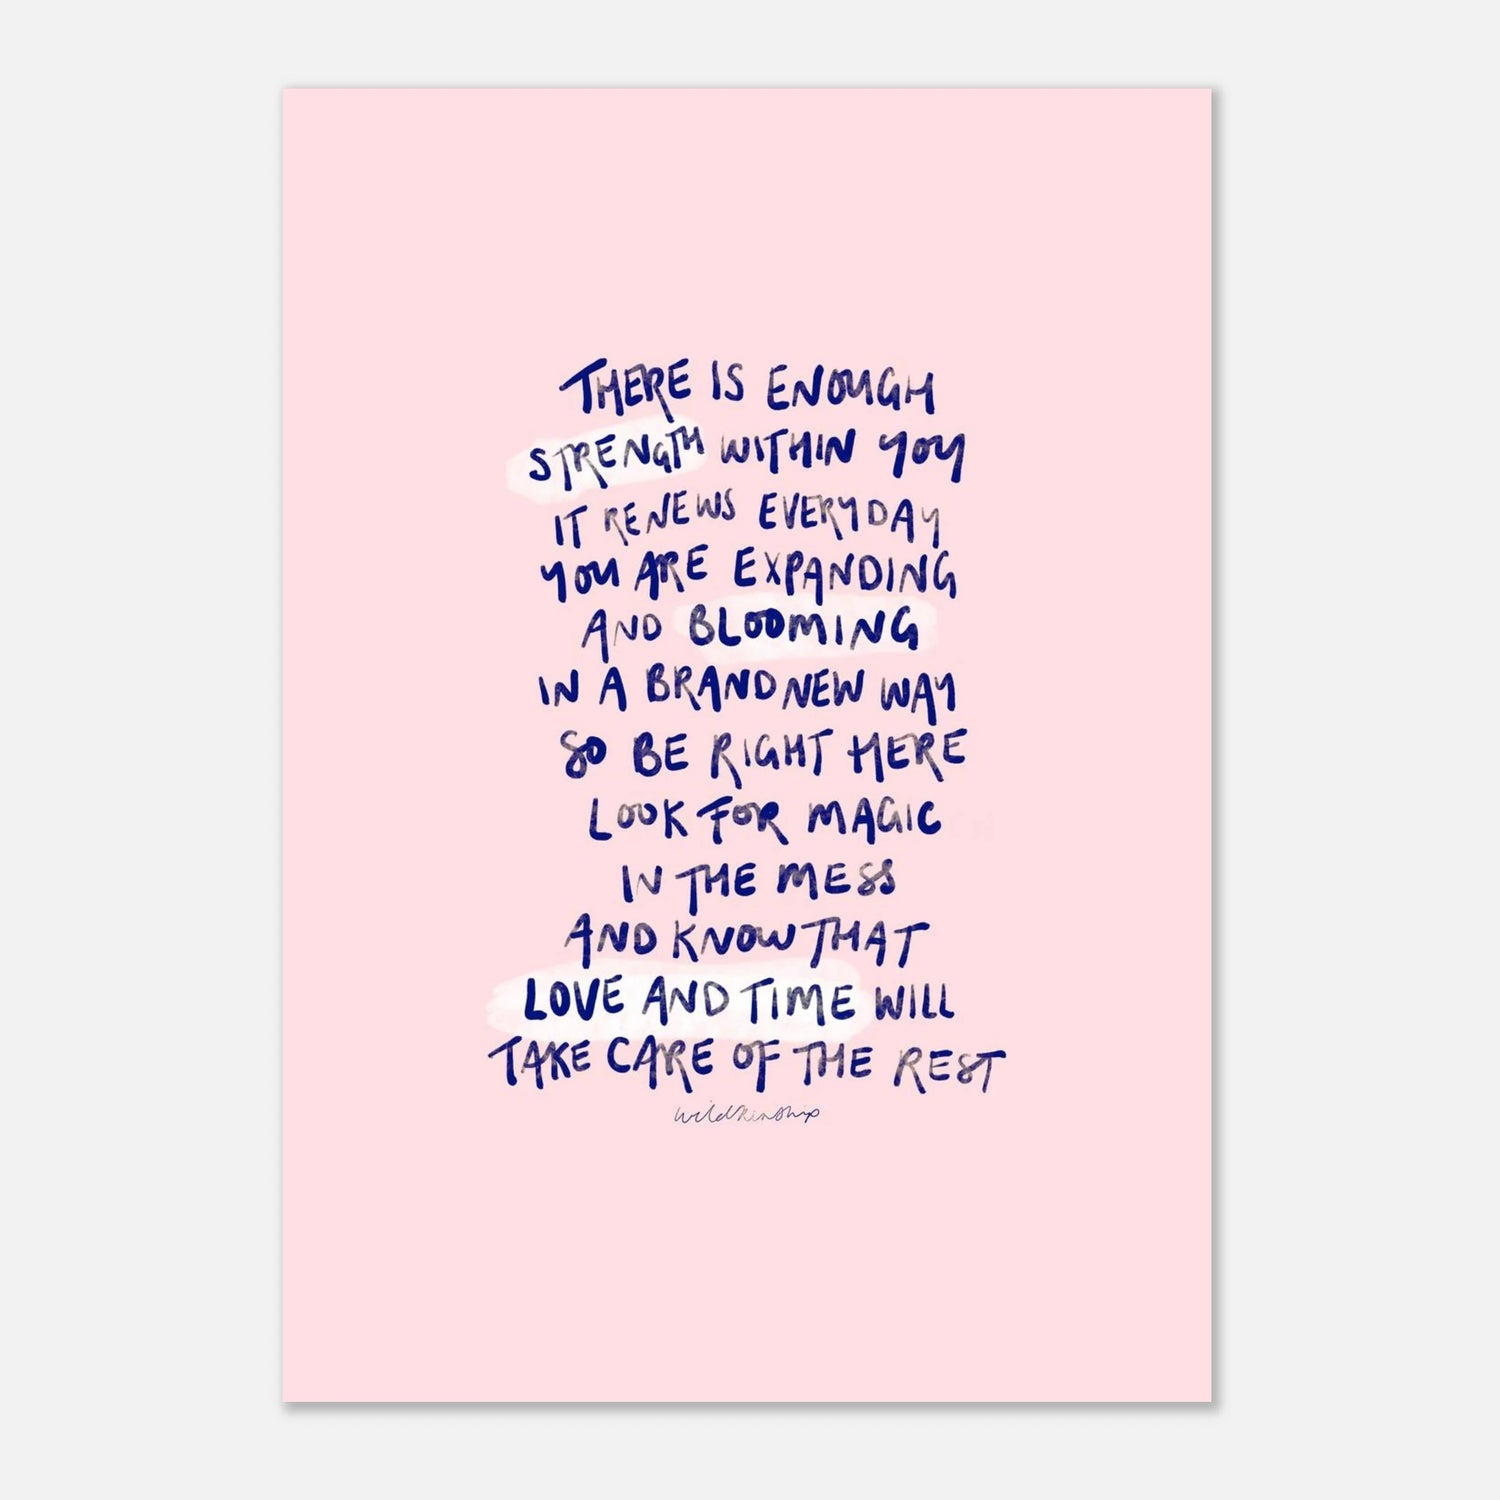 THERE IS ENOUGH
STRENGTH WITHIN YOU
IT RENEWS EVERYDAY
YOU ARE EXPANDING
AND BLOOMING
IN A BRAND NEW WAY
SO BE RIGHT HERE
LOOK FOR MAGIC
IN THE MESS
AND KNOW THAT
LOVE AND TIME WILL
TAKE CARE OF THE REST
wildkinship